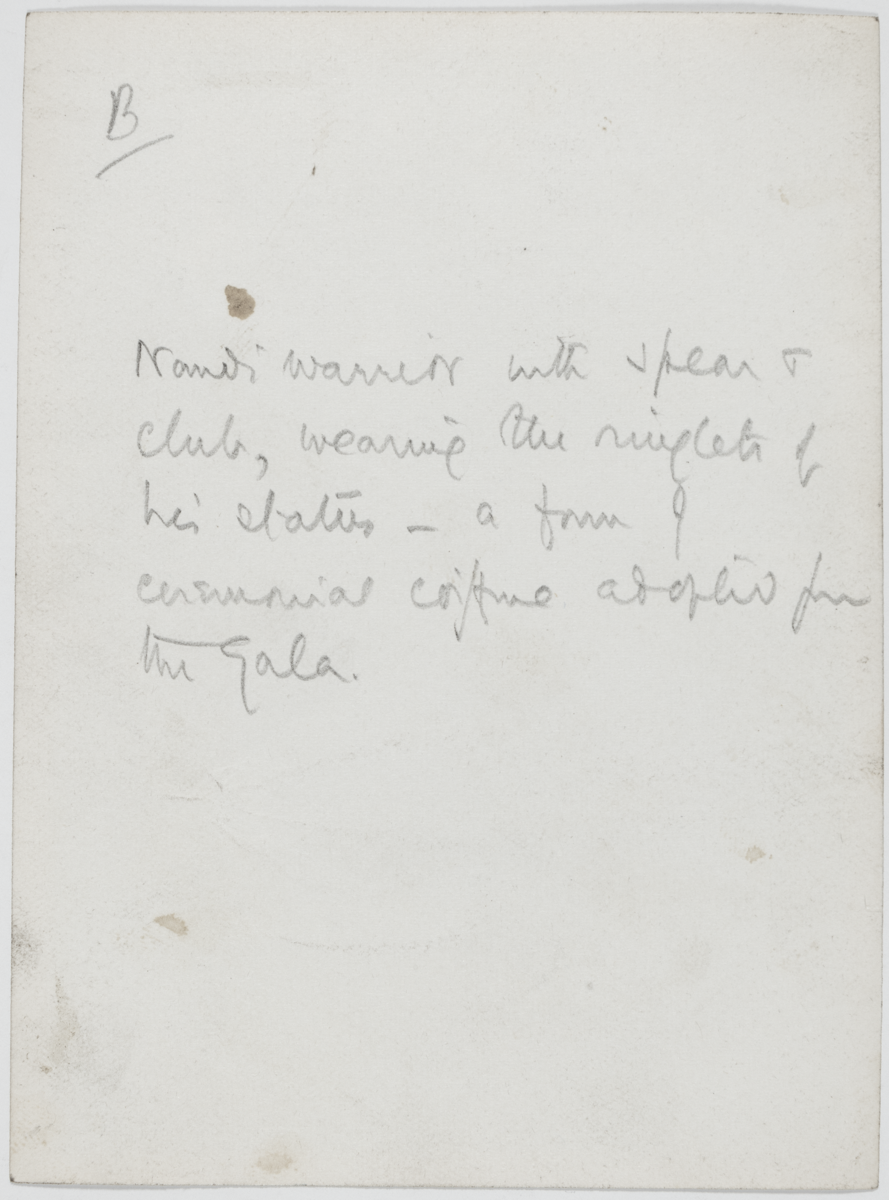 B
Nandi warrior with spear &
club, wearing the ringlets of
his status – a form of
ceremonial coiffure adopted for
the Gala.